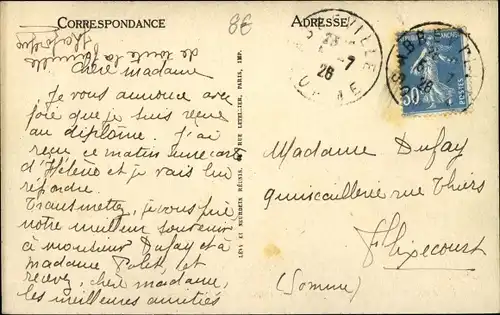 CORRESPONDANCE
ADRESSE
de toute la famille
Chère madame
Je vous annonce avec
joie que je suis reçue
au diplôme. J'ai
reçu ce matin une carte
d'Hélène et je vais lui
répondre.
Transmettez, je vous prie
notre meilleur souvenir
à monsieur Dufay et à
madame Polet, et
recevez, chère madame,
les meilleures amitiés
LEVY ET NEURDEIN RÉUNIS, RUE LETELLIER, PARIS, IMP.
VILLE
26
SOMME
ABBEVILLE
30
POSTES
Madame Dufay
quincaillerie rue Thiers
Flixecourt
(Somme)